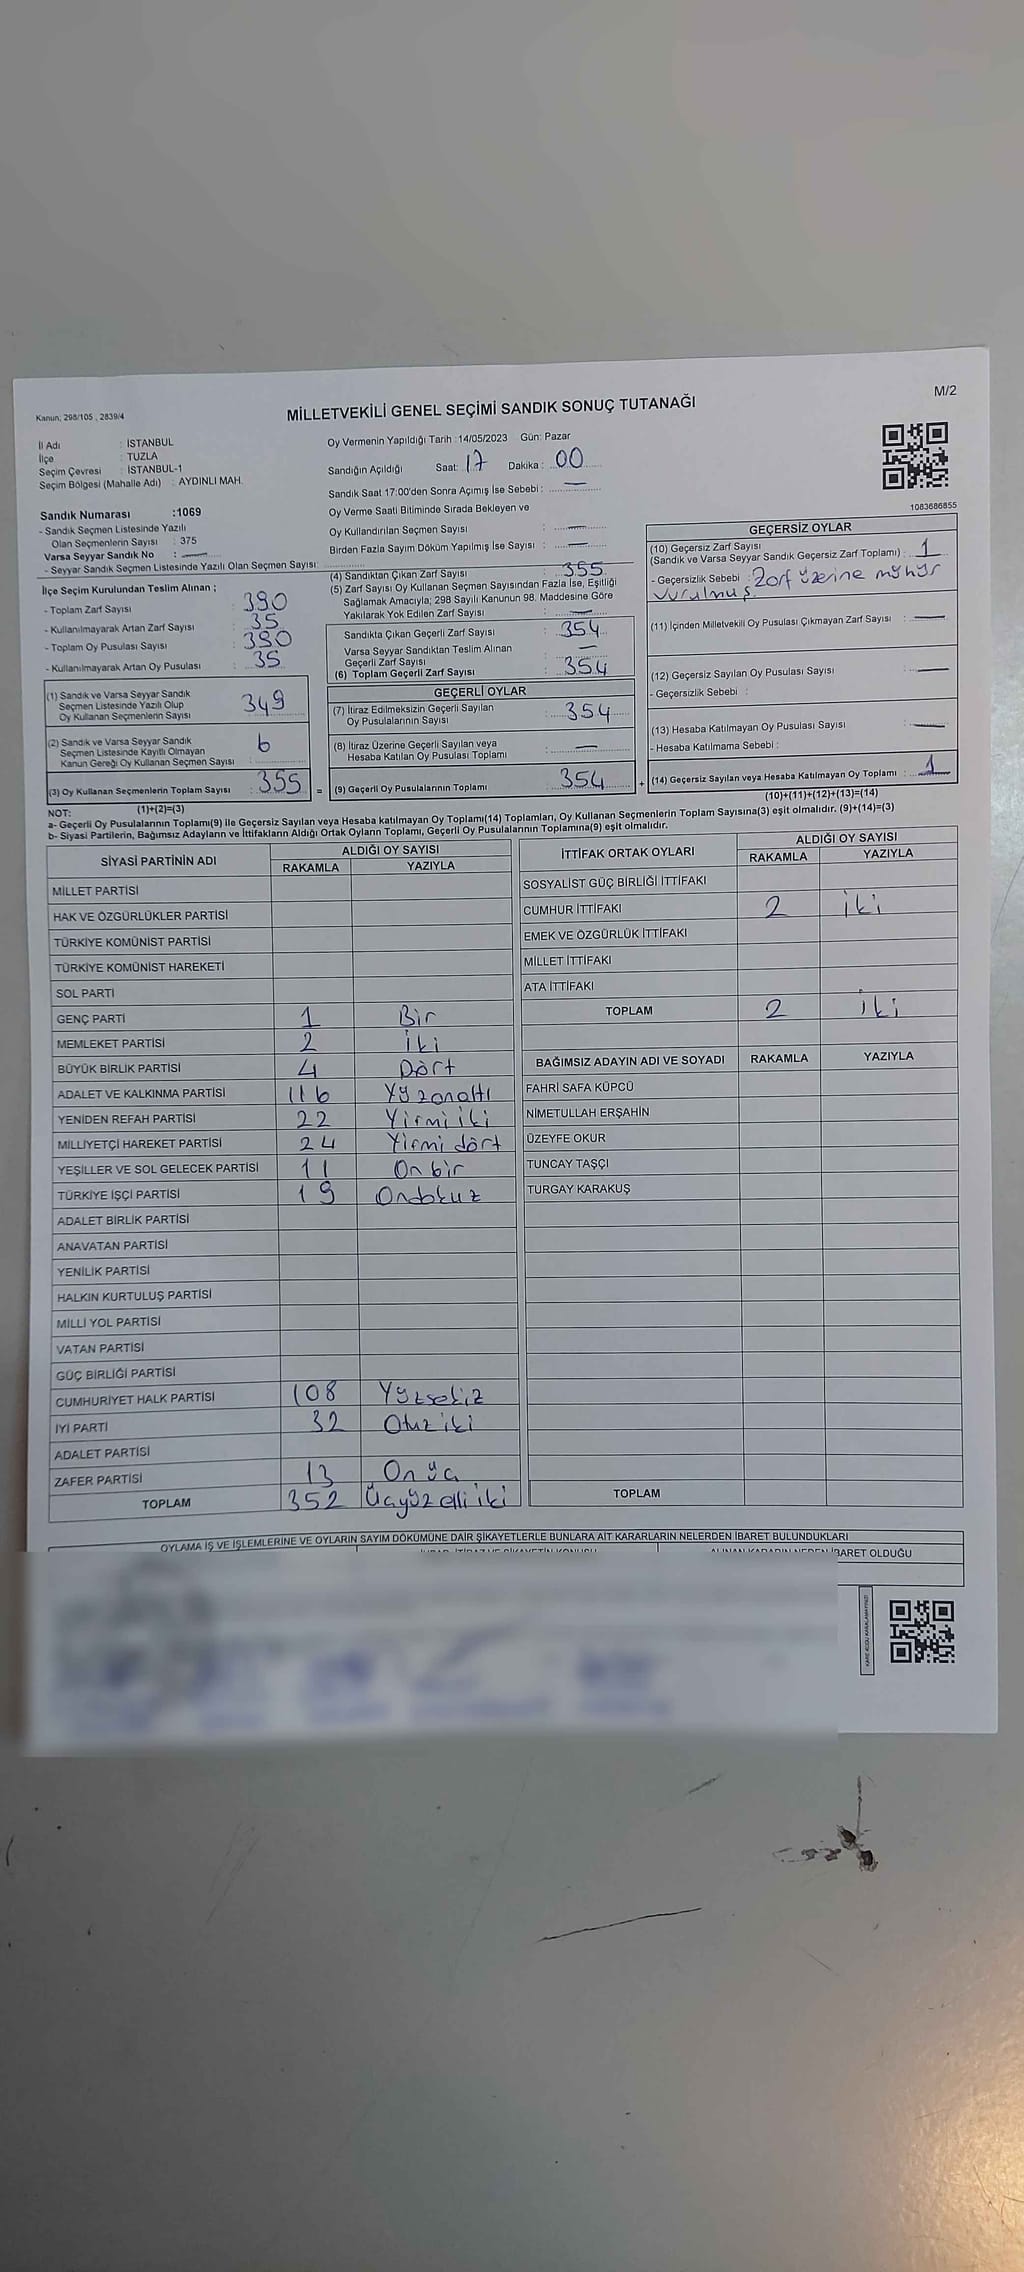 M/2
Kanun; 298/105 , 2839/4
MİLLETVEKİLİ GENEL SEÇİMİ SANDIK SONUÇ TUTANAĞI
İl Adı : İSTANBUL
İlçe : TUZLA
Seçim Çevresi : İSTANBUL-1
Seçim Bölgesi (Mahalle Adı) : AYDINLI MAH.
Sandık Numarası :1069
- Sandık Seçmen Listesinde Yazılı
Olan Seçmenlerin Sayısı : 375
Varsa Seyyar Sandık No : —
- Seyyar Sandık Seçmen Listesinde Yazılı Olan Seçmen Sayısı:
Oy Vermenin Yapıldığı Tarih :14/05/2023 Gün: Pazar
Sandığın Açıldığı Saat: 17 Dakika : 00
Sandık Saat 17:00'den Sonra Açımış İse Sebebi : —
Oy Verme Saati Bitiminde Sırada Bekleyen ve
Oy Kullandırılan Seçmen Sayısı : —
Birden Fazla Sayım Döküm Yapılmış İse Sayısı : —
1083686855
İlçe Seçim Kurulundan Teslim Alınan ;
- Toplam Zarf Sayısı : 390
- Kullanılmayarak Artan Zarf Sayısı : 35
- Toplam Oy Pusulası Sayısı : 390
- Kullanılmayarak Artan Oy Pusulası : 35
(1) Sandık ve Varsa Seyyar Sandık
Seçmen Listesinde Yazılı Olup
Oy Kullanan Seçmenlerin Sayısı 349
(2) Sandık ve Varsa Seyyar Sandık
Seçmen Listesinde Kayıtlı Olmayan
Kanun Gereği Oy Kullanan Seçmen Sayısı : 6
(3) Oy Kullanan Seçmenlerin Toplam Sayısı : 355 =
(1)+(2)=(3)
(4) Sandıktan Çıkan Zarf Sayısı : 355
(5) Zarf Sayısı Oy Kullanan Seçmen Sayısından Fazla İse, Eşitliği
Sağlamak Amacıyla; 298 Sayılı Kanunun 98. Maddesine Göre
Yakılarak Yok Edilen Zarf Sayısı : —
Sandıkta Çıkan Geçerli Zarf Sayısı : 354
Varsa Seyyar Sandıktan Teslim Alınan
Geçerli Zarf Sayısı : —
(6) Toplam Geçerli Zarf Sayısı : 354
GEÇERLİ OYLAR
(7) İtiraz Edilmeksizin Geçerli Sayılan
Oy Pusulalarının Sayısı : 354
(8) İtiraz Üzerine Geçerli Sayılan veya
Hesaba Katılan Oy Pusulası Toplamı : —
(9) Geçerli Oy Pusulalarının Toplamı : 354 +
GEÇERSİZ OYLAR
(10) Geçersiz Zarf Sayısı
(Sandık ve Varsa Seyyar Sandık Geçersiz Zarf Toplamı) : 1
- Geçersizlik Sebebi : Zarf üzerine mühür
vurulmuş
(11) İçinden Milletvekili Oy Pusulası Çıkmayan Zarf Sayısı : —
(12) Geçersiz Sayılan Oy Pusulası Sayısı : —
- Geçersizlik Sebebi :
(13) Hesaba Katılmayan Oy Pusulası Sayısı : —
- Hesaba Katılmama Sebebi :
(14) Geçersiz Sayılan veya Hesaba Katılmayan Oy Toplamı : 1
(10)+(11)+(12)+(13)=(14)
NOT:
a- Geçerli Oy Pusulalarının Toplamı(9) ile Geçersiz Sayılan veya Hesaba Katılmayan Oy Toplamı(14) Toplamları, Oy Kullanan Seçmenlerin Toplam Sayısına(3) eşit olmalıdır. (9)+(14)=(3)
b- Siyasi Partilerin, Bağımsız Adayların ve İttifakların Aldığı Ortak Oyların Toplamı, Geçerli Oy Pusulalarının Toplamına(9) eşit olmalıdır.
SİYASİ PARTİNİN ADI ALDIĞI OY SAYISI
RAKAMLA YAZIYLA
MİLLET PARTİSİ
HAK VE ÖZGÜRLÜKLER PARTİSİ
TÜRKİYE KOMÜNİST PARTİSİ
TÜRKİYE KOMÜNİST HAREKETİ
SOL PARTİ
GENÇ PARTİ 1 Bir
MEMLEKET PARTİSİ 2 İki
BÜYÜK BİRLİK PARTİSİ 4 Dört
ADALET VE KALKINMA PARTİSİ 116 Yüzonaltı
YENİDEN REFAH PARTİSİ 22 Yirmi iki
MİLLİYETÇİ HAREKET PARTİSİ 24 Yirmi dört
YEŞİLLER VE SOL GELECEK PARTİSİ 11 On bir
TÜRKİYE İŞÇİ PARTİSİ 19 Ondokuz
ADALET BİRLİK PARTİSİ
ANAVATAN PARTİSİ
YENİLİK PARTİSİ
HALKIN KURTULUŞ PARTİSİ
MİLLİ YOL PARTİSİ
VATAN PARTİSİ
GÜÇ BİRLİĞİ PARTİSİ
CUMHURİYET HALK PARTİSİ 108 Yüzsekiz
İYİ PARTİ 32 Otuz iki
ADALET PARTİSİ
ZAFER PARTİSİ 13 On üç
TOPLAM 352 Üçyüz elli iki
İTTİFAK ORTAK OYLARI ALDIĞI OY SAYISI
RAKAMLA YAZIYLA
SOSYALİST GÜÇ BİRLİĞİ İTTİFAKI
CUMHUR İTTİFAKI 2 İki
EMEK VE ÖZGÜRLÜK İTTİFAKI
MİLLET İTTİFAKI
ATA İTTİFAKI
TOPLAM 2 İki
BAĞIMSIZ ADAYIN ADI VE SOYADI RAKAMLA YAZIYLA
FAHRİ SAFA KÜPCÜ
NİMETULLAH ERŞAHİN
ÜZEYFE OKUR
TUNCAY TAŞÇI
TURGAY KARAKUŞ
TOPLAM
OYLAMA İŞ VE İŞLEMLERİNE VE OYLARIN SAYIM DÖKÜMÜNE DAİR ŞİKAYETLERLE BUNLARA AİT KARARLARIN NELERDEN İBARET BULUNDUKLARI
İBARET OLDUĞU